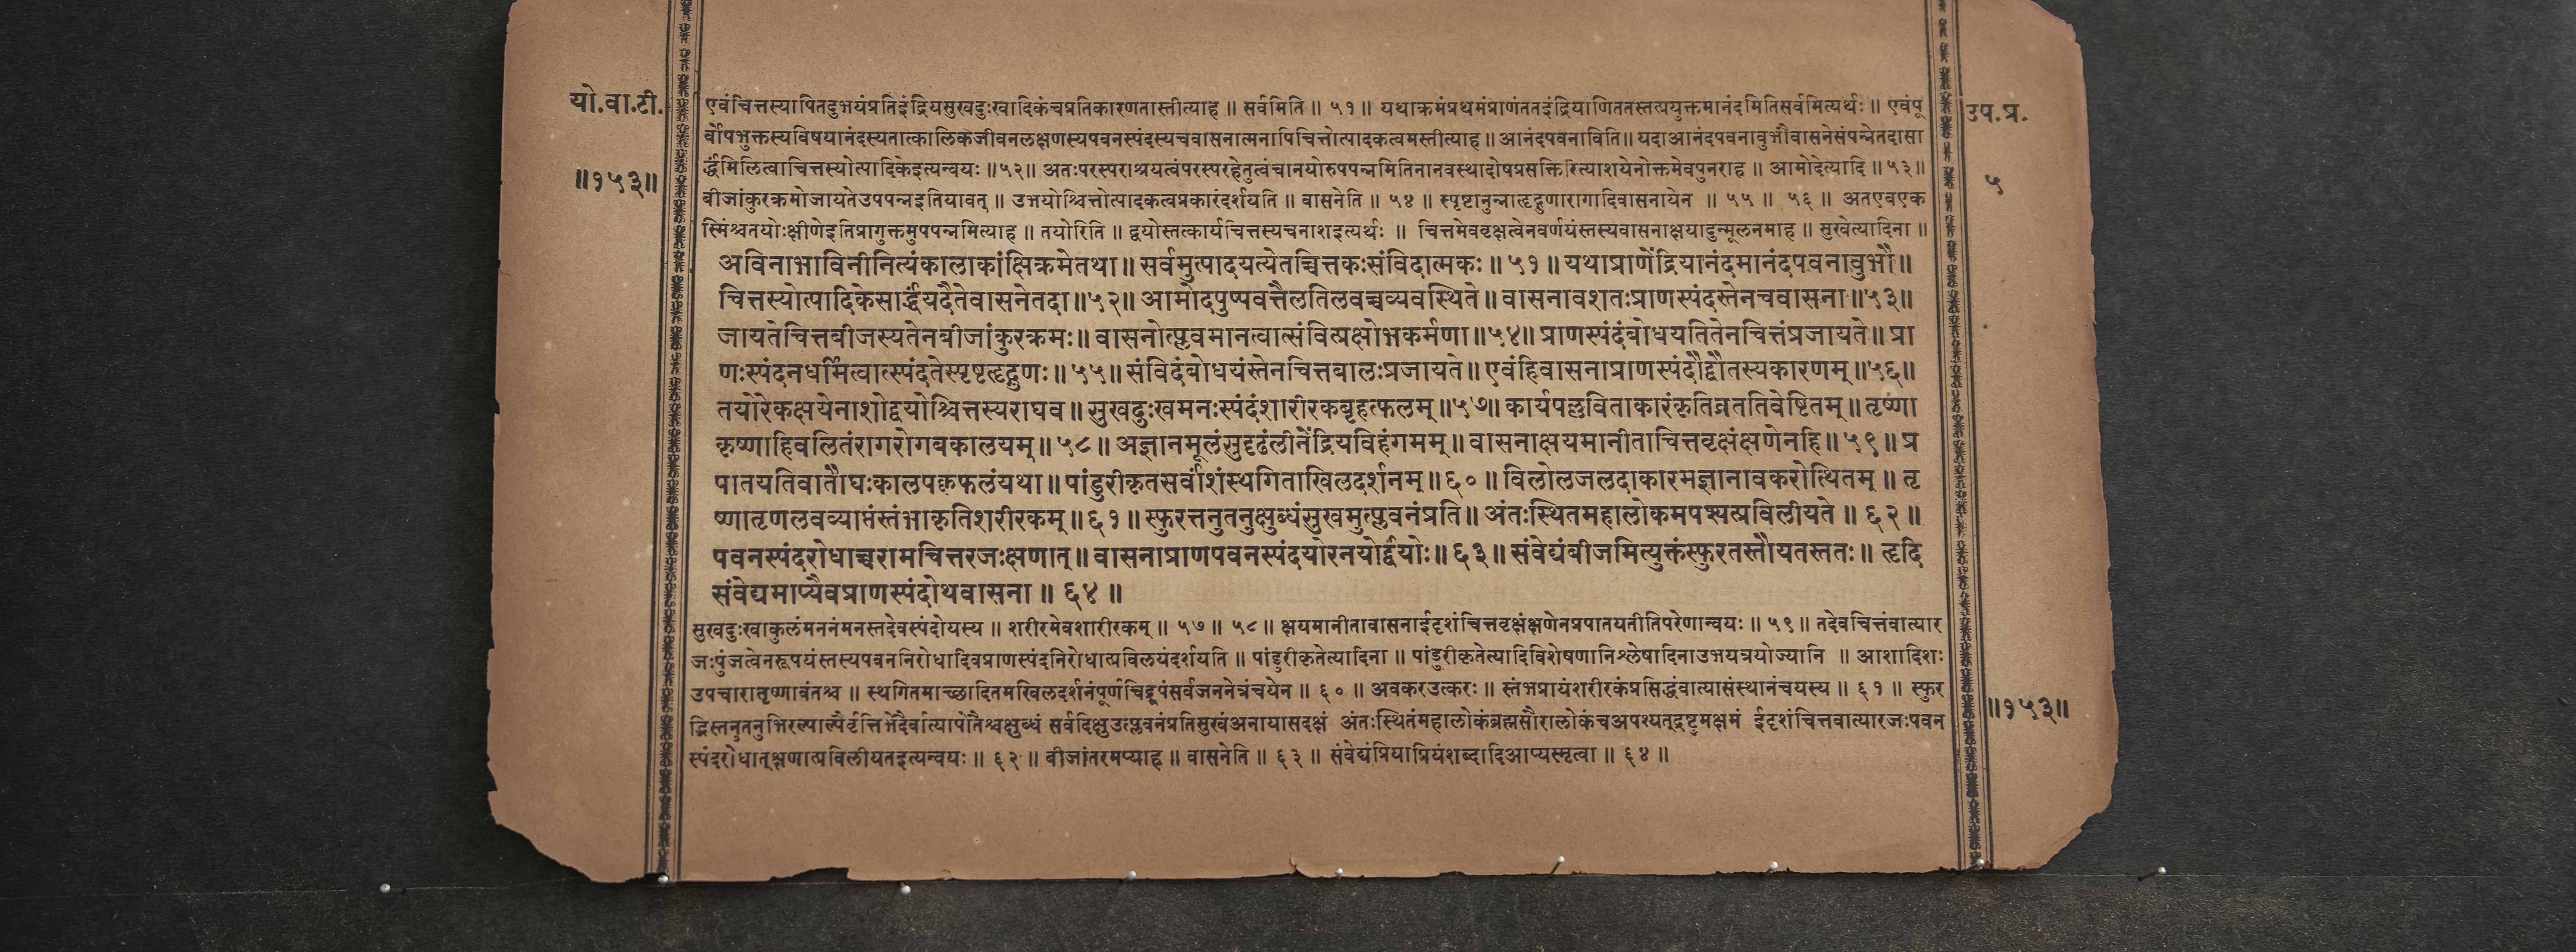 यो.वा.टी.
॥१५३॥
एवंचित्तस्यापितदुभयंप्रतिइंद्रियसुखदुःखादिकंचप्रतिकारणतास्तीत्याह ॥ सर्वमिति ॥ ५१ ॥ यथाक्रमंप्रथमंप्राणंततइंद्रियाणिततस्तत्प्रयुक्तमानंदमितिसर्वमित्यर्थः ॥ एवंपू
र्वोपभुक्तस्यविषयानंदस्यतात्कालिकजीवनलक्षणस्यपवनस्पंदस्यचवासनात्मनापिचित्तोत्पादकत्वमस्तीत्याह ॥ आनंदपवनाविति ॥ यदाआनंदपवनावुभौवासनेसंपन्नेतदासा
र्द्धंमिलित्वाचित्तस्योत्पादिकेइत्यन्वयः ॥५२॥ अतःपरस्पराश्रयत्वंपरस्परहेतुत्वंचानयोरुपपन्नमितिनानवस्थादोषप्रसक्तिरित्याशयेनोक्तमेवपुनराह ॥ आमोदेत्यादि ॥५३॥
बीजांकुरक्रमोजायतेउपपन्नइतियावत् ॥ उभयोश्चित्तोत्पादकत्वप्रकारंदर्शयति ॥ वासनेति ॥ ५४ ॥ स्पृष्टानुन्नाहृद्गुणारागादिवासनायेन ॥ ५५ ॥ ५६ ॥ अतएवएक
स्मिंश्चतयोःक्षीणेइतिप्रागुक्तमुपपन्नमित्याह ॥ तयोरिति ॥ द्वयोस्तत्कार्यचित्तस्यचनाशइत्यर्थः ॥ चित्तमेववृक्षत्वेनवर्णयंस्तस्यवासनाक्षयादुन्मूलनमाह ॥ सुखेत्यादिना ॥
अविनाभाविनीनित्यंकालाकांक्षिक्रमेतथा ॥ सर्वमुत्पादयत्येतच्चित्तकःसंविदात्मकः ॥ ५१ ॥ यथाप्राणेंद्रियानंदमानंदपवनावुभौ ॥
चित्तस्योत्पादिकेसार्द्धंयदैतेवासनेतदा ॥५२॥ आमोदपुष्पवत्तैलतिलवच्चव्यवस्थिते ॥ वासनावशतःप्राणस्पंदस्तेनचवासना ॥५३॥
जायतेचित्तबीजस्यतेनबीजांकुरक्रमः ॥ वासनोत्प्लवमानत्वात्संवित्प्रक्षोभकर्मणा ॥५४॥ प्राणस्पंदंबोधयतितेनचित्तंप्रजायते ॥ प्रा
णःस्पंदनधर्मित्वात्स्पंदतेस्पृष्टहृद्गुणः ॥ ५५ ॥ संविदंबोधयंस्तेनचित्तबालःप्रजायते ॥ एवंहिवासनाप्राणस्पंदौद्वौतस्यकारणम् ॥५६॥
तयोरेकक्षयेनाशोद्वयोश्चित्तस्यराघव ॥ सुखदुःखमनःस्पंदंशारीरकबृहत्फलम् ॥५७॥ कार्यपल्लविताकारंकृतिव्रततिवेष्टितम् ॥ तृष्णा
कृष्णाहिवलितंरागरोगबकालयम् ॥ ५८ ॥ अज्ञानमूलंसुदृढंलीनेंद्रियविहंगमम् ॥ वासनाक्षयमानीताचित्तवृक्षंक्षणेनहि ॥ ५९ ॥ प्र
पातयतिवातौघःकालपक्वफलंयथा ॥ पांडुरीकृतसर्वाशंस्थगिताखिलदर्शनम् ॥ ६० ॥ विलोलजलदाकारमज्ञानावकरोत्थितम् ॥ तृ
ष्णातृणलवव्याप्तंस्तंभाकृतिशरीरकम् ॥ ६१ ॥ स्फुरत्तनुतनुक्षुब्धंसुखमुत्प्लवनंप्रति ॥ अंतःस्थितमहालोकमपश्यत्प्रविलीयते ॥ ६२ ॥
पवनस्पंदरोधाच्चरामचित्तरजःक्षणात् ॥ वासनाप्राणपवनस्पंदयोरनयोर्द्वयोः ॥ ६३ ॥ संवेद्यंबीजमित्युक्तंस्फुरतस्तौयतस्ततः ॥ हृदि
संवेद्यमाप्यैवप्राणस्पंदोथवासना ॥ ६४ ॥
सुखदुःखाकुलंमननंमनस्तदेवस्पंदोयस्य ॥ शरीरमेवशारीरकम् ॥ ५७ ॥ ५८ ॥ क्षयमानीतावासनाईदृशंचित्तवृक्षंक्षणेनप्रपातयतीतिपरेणान्वयः ॥ ५९ ॥ तदेवचित्तंवात्यार
जःपुंजत्वेनरूपयंस्तस्यपवननिरोधादिवप्राणस्पंदनिरोधात्प्रविलयंदर्शयति ॥ पांडुरीकृतेत्यादिना ॥ पांडुरीकृतेत्यादिविशेषणानिश्लेषादिनाउभयत्रयोज्यानि ॥ आशादिशः
उपचारात्तृष्णावंतश्च ॥ स्थगितमाच्छादितमखिलदर्शनंपूर्णचिद्रूपंसर्वजननेत्रंचयेन ॥ ६० ॥ अवकरउत्करः ॥ स्तंभप्रायंशरीरकंप्रसिद्धंवात्यासंस्थानंचयस्य ॥ ६१ ॥ स्फुर
द्भिस्तनुतनुभिरल्पाल्पैर्वृत्तिभेदैर्वात्यापोतैश्चक्षुब्धं सर्वदिक्षुउत्प्लवनंप्रतिसुखंअनायासदक्षं अंतःस्थितंमहालोकंब्रह्मसौरालोकंचअपश्यत्द्रष्टुमक्षमं ईदृशंचित्तवात्यारजःपवन
स्पंदरोधात्क्षणात्प्रविलीयतइत्यन्वयः ॥ ६२ ॥ बीजांतरमप्याह ॥ वासनेति ॥ ६३ ॥ संवेद्यंप्रियाप्रियंशब्दादिआप्यस्मृत्वा ॥ ६४ ॥
उप.प्र.
५
॥१५३॥